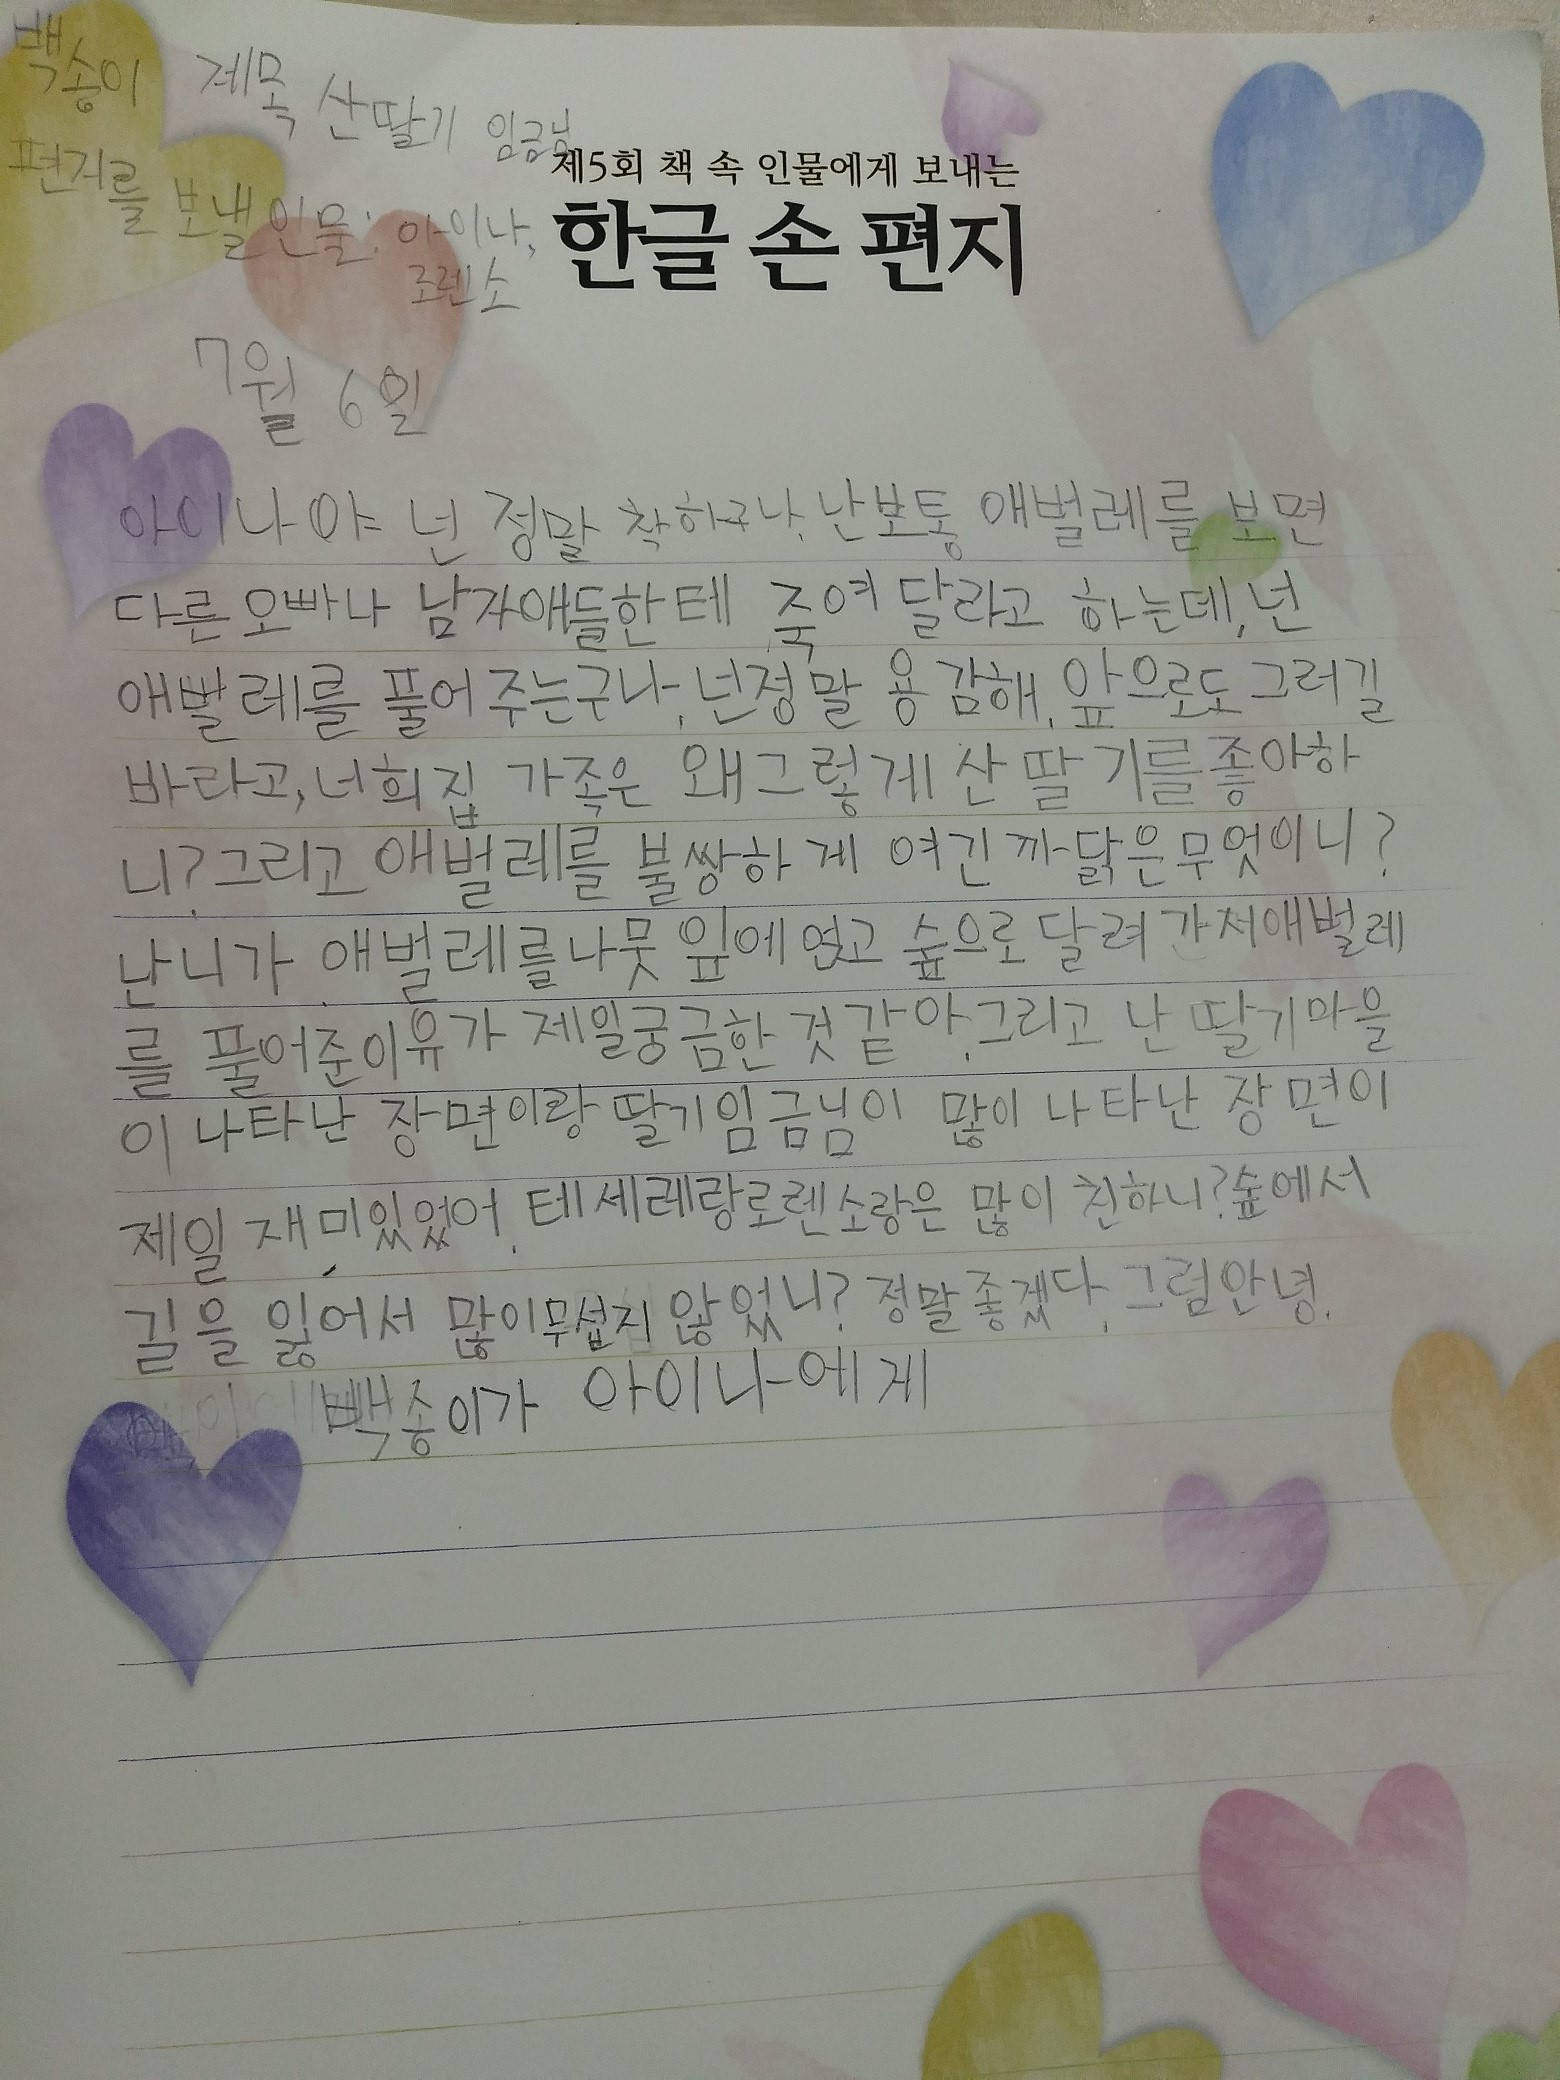 백송이 제목 산딸기 임금님
편지를 보낼 인물: 아이나,
로렌소
제5회 책 속 인물에게 보내는
한글 손 편지
7월 6일
아이나야 넌 정말 착하구나, 난보통 애벌레를 보면
다른 오빠나 남자애들한테 죽여 달라고 하는데, 넌
애벌레를 풀어 주는구나, 넌정말 용감해. 앞으로도 그러길
바라고, 너희집 가족은 왜그렇게 산딸기를좋아하
니? 그리고 애벌레를 불쌍하게 여긴 까닭은무엇이니?
난 니가 애벌레를 나뭇잎에 얹고 숲으로 달려가서애벌레
를 풀어준이유가 제일궁금한 것 같아. 그리고 난 딸기마을
이 나타난 장면이랑 딸기임금님이 많이 나타난 장면이
제일 재미있었어. 테세레랑로렌소랑은 많이 친하니? 숲에서
길을 잃어서 많이무섭지 않았니? 정말좋겠다, 그럼안녕.
백송이가 아이나에게